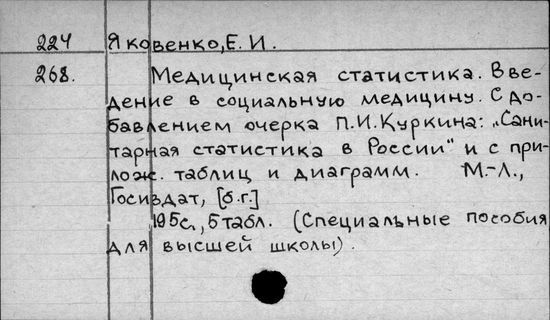 224 Яковенко, Е. И.
268. Медицинская статистика. Вве-
дение в социальную медицину. С до-
бавлением очерка П.И.Куркина: „Сани-
тарная статистика в России" и с при-
лож. таблиц и диаграмм. М.-Л.,
Госиздат, [б.г.]
195с., 5 табл. (Специальные пособия
для высшей школы).